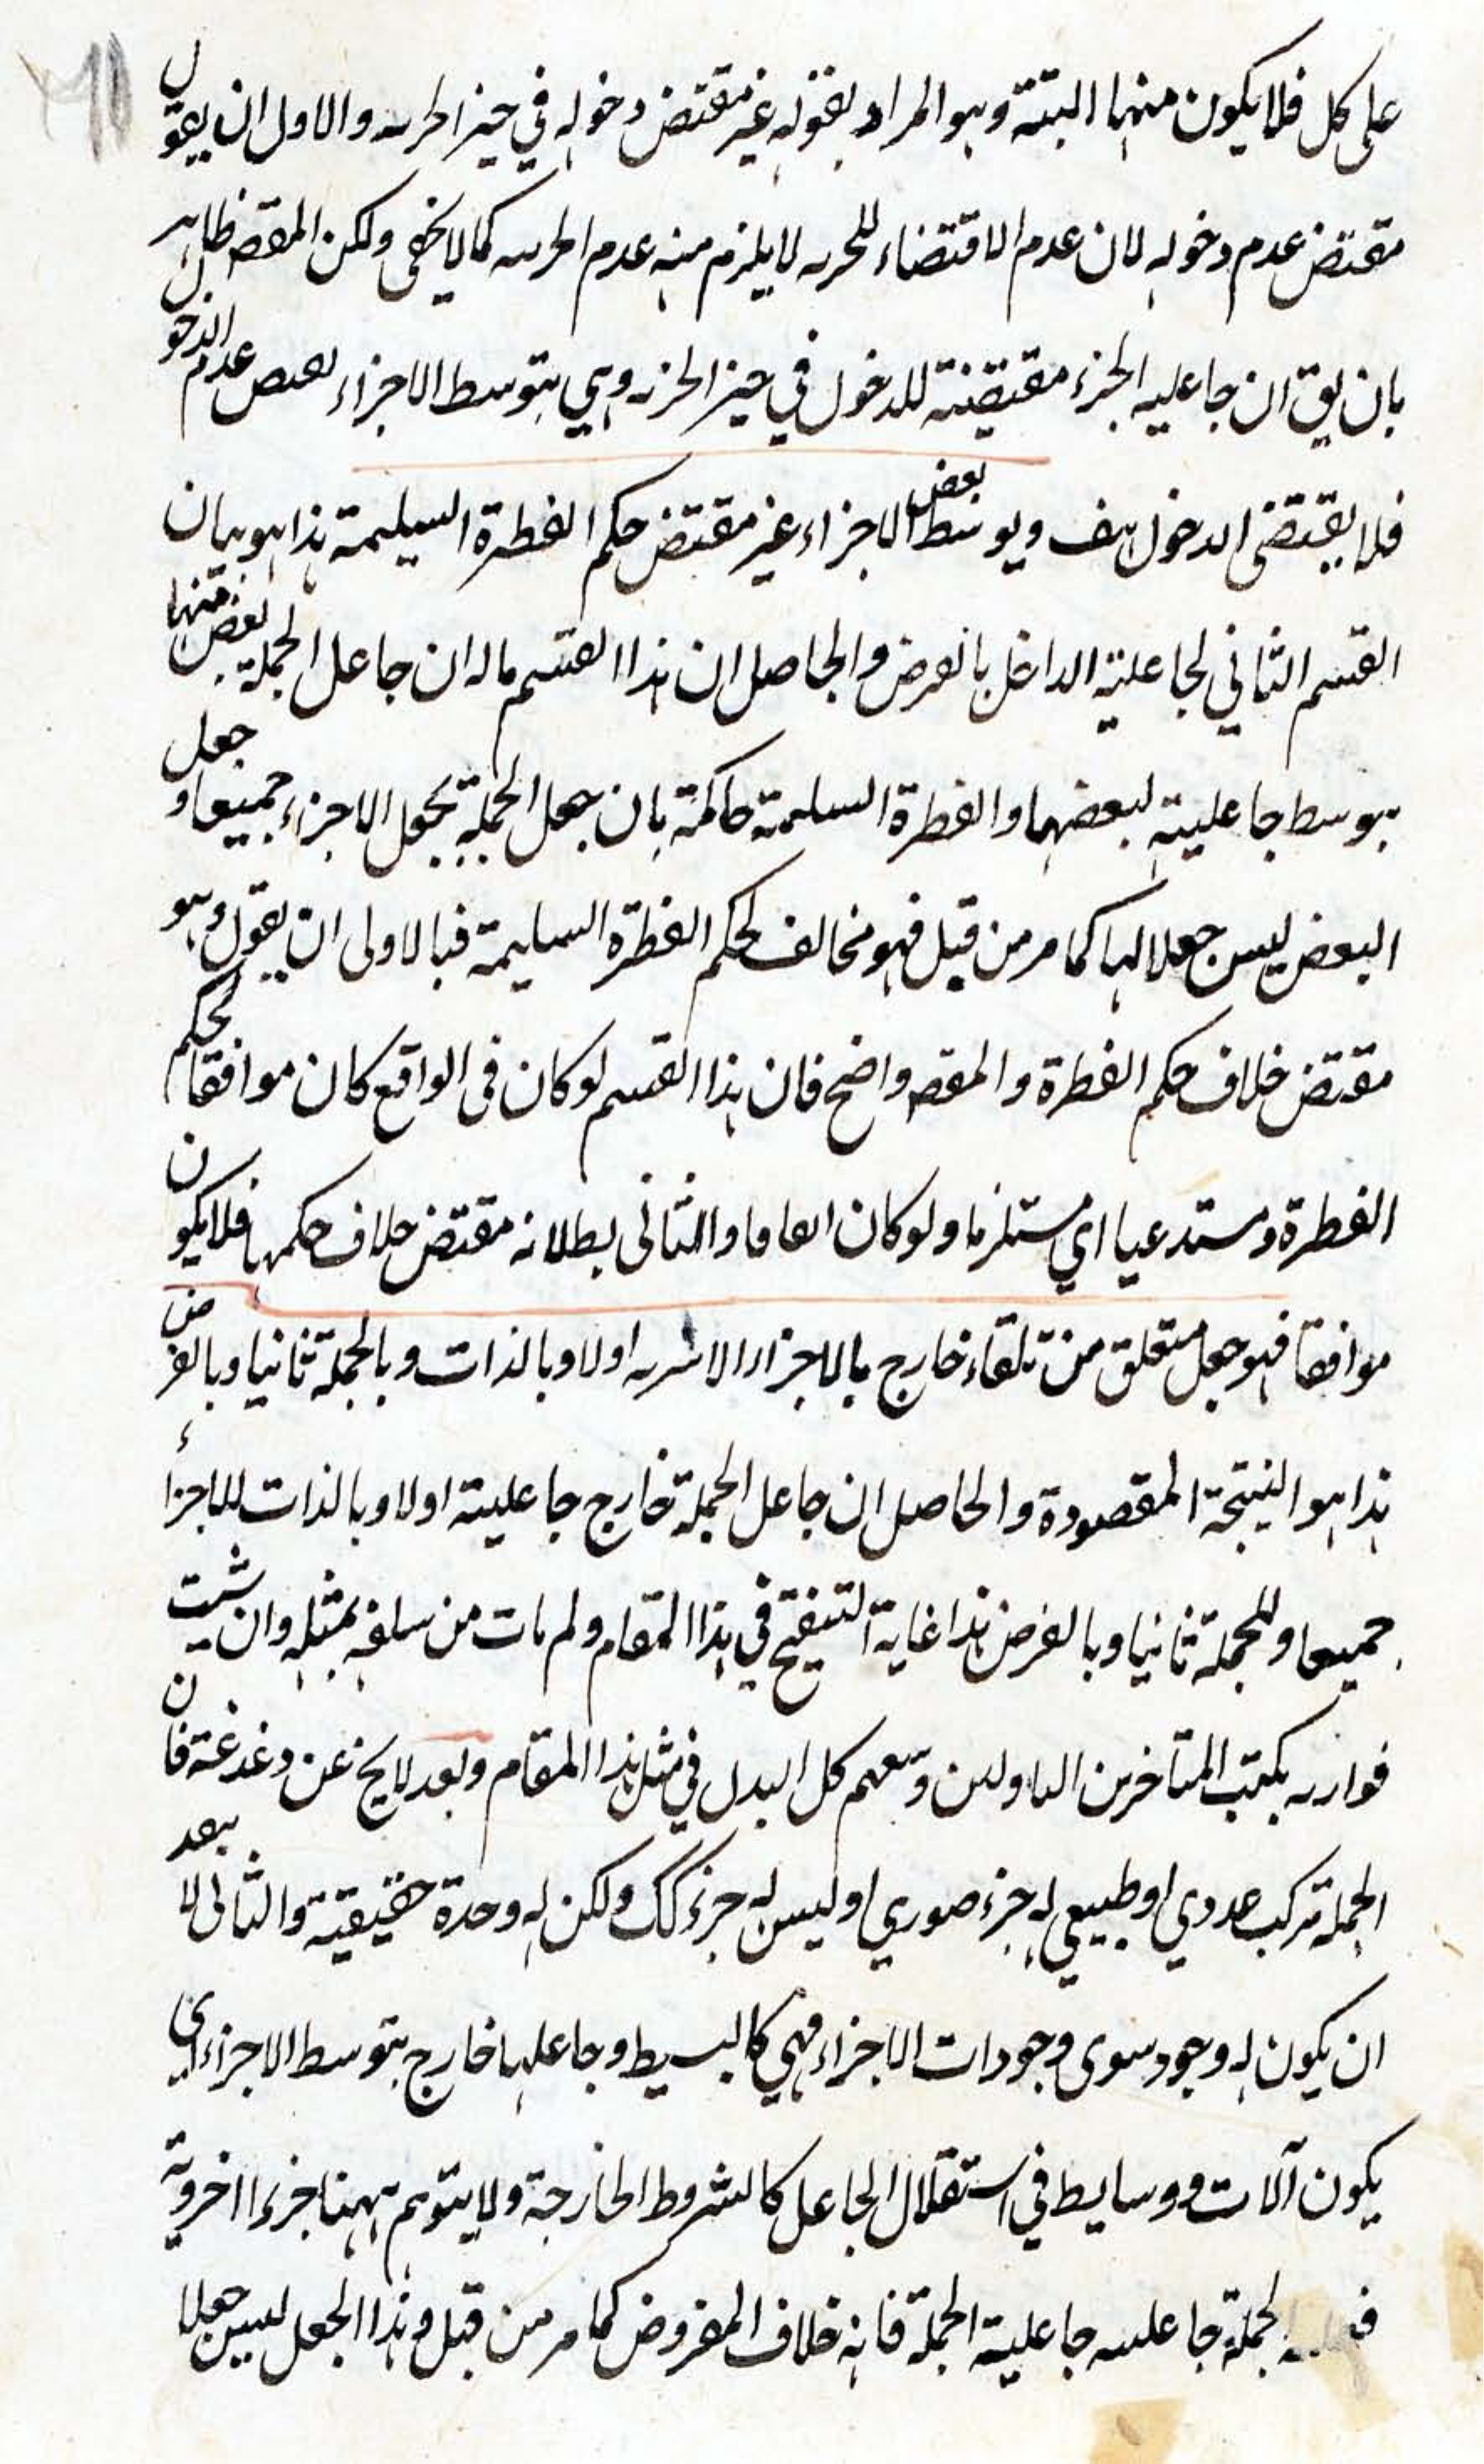 على كل فلا يكون منهما البتة وهو المراد بقوله غير مقتض دخوله في حيز الحريه والاول ان يقول
مقتض عدم دخوله لان عدم الاقتضاء للحريه لا يلزم منه عدم الحريه كما لا يخفى ولكن المقصه ظاهر
بان يق ان جاعليه الجزء مقتضية للدخول في حيز الجزيه وهي بتوسط الاجزاء عدم الدخول
فلا يقتضى الدخول هف وبوسط بعض الاجزاء غير مقتض حكم الفطرة السليمة هذا هو بيان
القسم الثاني لجاعلية الداخل بالعرض والحاصل ان هذا القسم ماله ان جاعل الجملة بعض منها
بوسط جاعليته لبعضها والفطرة السليمة حاكمة بان جعل الجملة بجعل الاجزاء جميعا وجعل
البعض ليس جعلا لها كما مر من قبل فهو مخالف لحكم الفطرة السليمة فبالاولى ان يقول وهو
مقتض خلاف حكم الفطرة والمقصه واضح فان هذا القسم لو كان فى الواقع كان موافقا لحكم
الفطرة ومستدعيا اي مستلزما ولو كان اتفاقا والثانى بطلانه مقتض خلاف حكمها فلا يكون
موافقا فهو جعل متعلق من تلقاء خارج بالاجزاء الاسريه اولا وبالذات وبالجملة ثانيا وبالعرض
هذا هو النتيجة المقصودة والحاصل ان جاعل الجملة خارج جاعليته اولا وبالذات للاجزاء
جميعا وللجملة ثانيا وبالعرض هذا غاية التنقيح في هذا المقام ولم يات من سلف بمثله وان شيت
فوازره بكتب المتاخرين وسعهم كل البدل في مثل هذا المقام وبعد لا يخ عن دغدغة فان
الجملة مركب عددي او طبيعي له جزء صوري او ليس له جزء كك ولكن له وحدة حقيقية والثانى لا يبعد
ان يكون له وجود سوى وجودات الاجزاء فهي كالبسيط وجاعلها خارج بتوسط الاجزاء اي
يكون آلات ووسايط في استقلال الجاعل كالشروط الخارجة ولا يتوهم ههنا جزءا اخرويه
لجملة جاعليه جاعلية الجملة فانه خلاف المفروض كما مر من قبل وهذا الجعل ليس جعلا